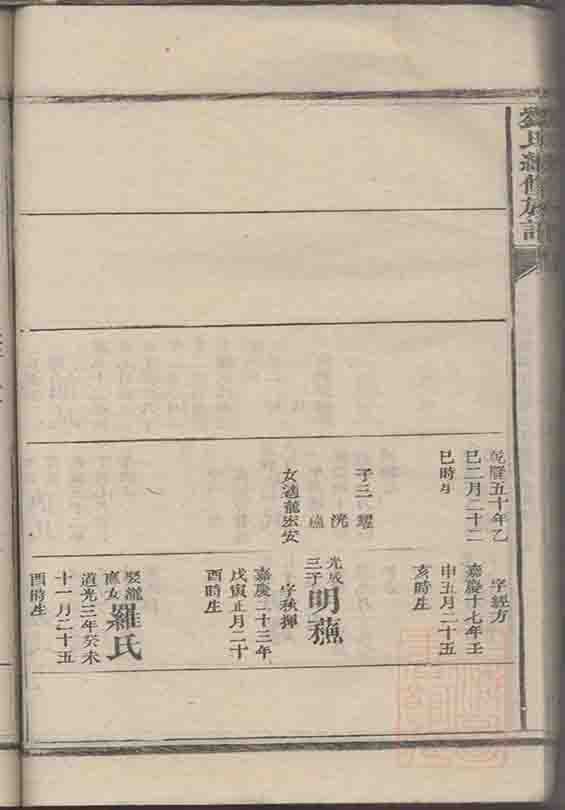 劉氏續修族譜
乾隆五十年乙
巳二月二十二
巳時生
子三 耀
洸
女適龍宏安
字經方
嘉慶十七年壬
申五月二十五
亥時生
光成
三子
明蘓
字秋揮
嘉慶二十三年
戊寅正月二十
酉時生
娶龍
應女
羅氏
道光三年癸未
十一月二十五
酉時生